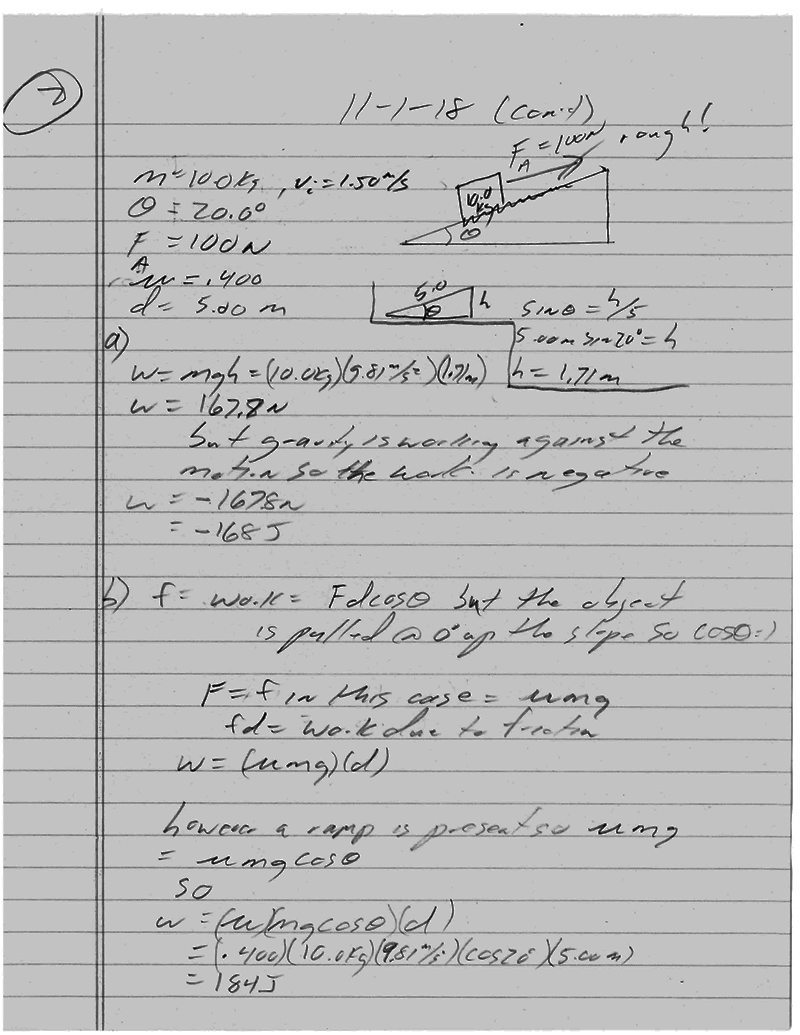 7
11-1-18 (con't)
F_A = 100N rough!
m = 10.0kg, v_i = 1.50 m/s
10.0 kg
θ
θ = 20.0°
F_A = 100N
μ = .400
d = 5.00 m
5.0 h
θ
sinθ = h/5
5.00m sin20° = h
h = 1.71m
a)
w = mgh = (10.0kg)(9.81 m/s²)(1.71m)
w = 167.8N
but gravity is working against the
motion so the work is negative
w = -167.8N
= -168J
b) f = work = Fdcosθ but the object
is pulled @ 0° up the slope so cosθ=1
F = f in this case = μmg
fd = work due to friction
w = (μmg)(d)
however a ramp is present so μmg
= μmgcosθ
so
w = (μ)(mgcosθ)(d)
= (.400)(10.0kg)(9.81 m/s²)(cos20°)(5.00m)
= 184J